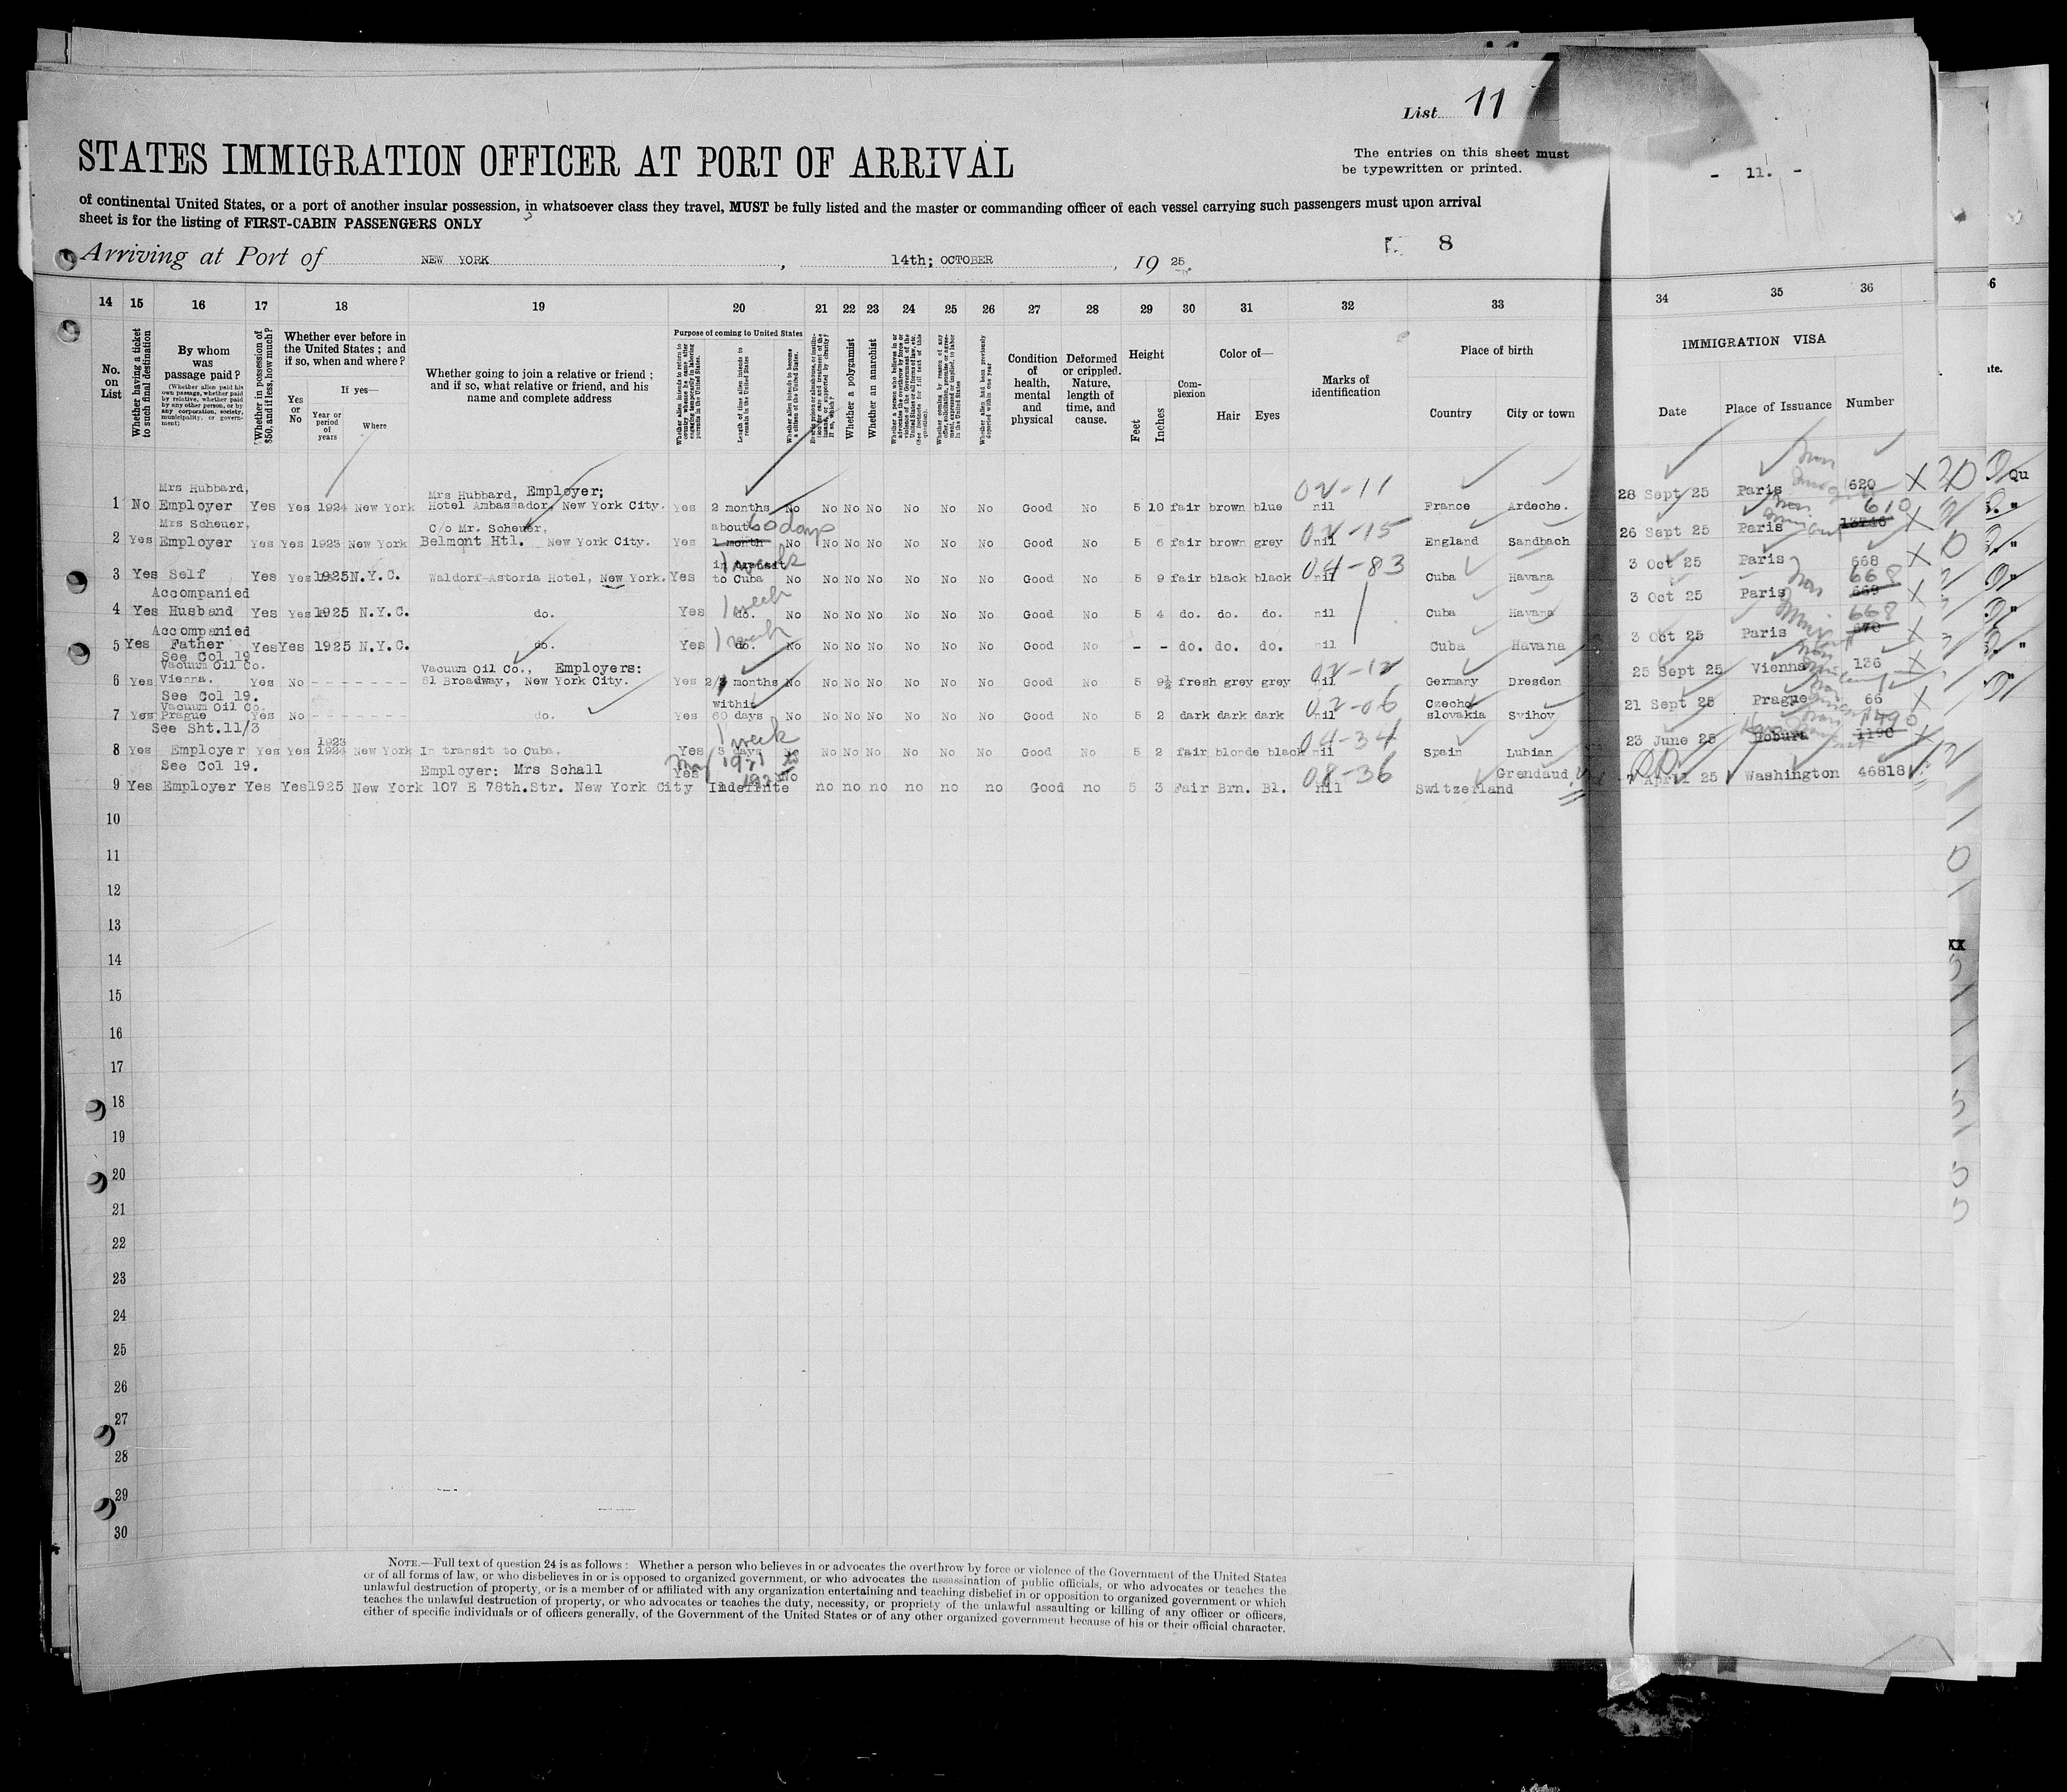 List 11
STATES IMMIGRATION OFFICER AT PORT OF ARRIVAL
The entries on this sheet must
be typewritten or printed.
- 11. -
of continental United States, or a port of another insular possession, in whatsoever class they travel, MUST be fully listed and the master or commanding officer of each vessel carrying such passengers must upon arrival
sheet is for the listing of FIRST-CABIN PASSENGERS ONLY
8
Arriving at Port of NEW YORK, 14th; OCTOBER, 19 25.
14 15 16 17 18 19 20 21 22 23 24 25 26 27 28 29 30 31 32 33 34 35 36
No. on List
Whether having a ticket to such final destination
By whom was passage paid?
(Whether alien paid his own passage, whether paid by relative, whether paid by any other person, or by any corporation, society, municipality, or government)
Whether in possession of $50, and if less, how much?
Whether ever before in the United States; and if so, when and where?
Yes or No
If yes—
Year or period of years
Where
Whether going to join a relative or friend; and if so, what relative or friend, and his name and complete address
Purpose of coming to United States
Whether alien intends to return to country whence he came after engaging temporarily in laboring pursuits in the United States.
Length of time alien intends to remain in the United States
Whether alien intends to become a citizen of the United States.
Whether a polygamist
Whether an anarchist
Condition of health, mental and physical
Deformed or crippled. Nature, length of time, and cause.
Height
Feet
Inches
Complexion
Color of—
Hair
Eyes
Marks of identification
Place of birth
Country
City or town
IMMIGRATION VISA
Date
Place of Issuance
Number
Mrs Hubbard, Mrs Hubbard, Employer; 02-11
1 No Employer Yes Yes 1924 New York Hotel Ambassador, New York City. Yes 2 months No No No No No No No Good No 5 10 fair brown blue nil France Ardeche. 28 Sept 25 Paris 620
Mrs Scheuer, C/o Mr. Scheuer, about 60 days 02-15 610
2 Yes Employer Yes Yes 1923 New York Belmont Htl. New York City. Yes 1 month No No No No No No No Good No 5 6 fair brown grey nil England Sandbach 26 Sept 25 Paris
in transit 1 week 04-83
3 Yes Self Yes Yes 1925 N.Y.C. Waldorf-Astoria Hotel, New York. Yes to Cuba No No No No No No No Good No 5 9 fair black black nil Cuba Havana 3 Oct 25 Paris 668
Accompanied 1 week 668
4 Yes Husband Yes Yes 1925 N.Y.C. do. Yes do. No No No No No No No Good No 5 4 do. do. do. nil Cuba Havana 3 Oct 25 Paris 669
Accompanied 1 week 668
5 Yes Father Yes Yes 1925 N.Y.C. do. Yes do. No No No No No No No Good No - - do. do. do. nil Cuba Havana 3 Oct 25 Paris 670
See Col 19
Vacuum Oil Co. Vacuum Oil Co., Employers: 02-12
6 Yes Vienna. Yes No - - - - - - - 61 Broadway, New York City. Yes 2/3 months No No No No No No No Good No 5 9½ fresh grey grey nil Germany Dresden 25 Sept 25 Vienna 136
See Col 19.
Vacuum Oil Co. within 02-06 Czecho
7 Yes Prague Yes No - - - - - - - do. Yes 60 days No No No No No No No Good No 5 2 dark dark dark nil slovakia Svihov 21 Sept 25 Prague 66
See Sht.11/3 1923 1 week 04-34 1490
8 Yes Employer Yes Yes 1924 New York In transit to Cuba. Yes 3 days No No No No No No No Good No 5 2 fair blonde black nil Spain Lubian 23 June 25 1190
See Col 19. Employer: Mrs Schall Yes No 08-36 Grendaud
9 Yes Employer Yes Yes 1925 New York 107 E 78th.Str. New York City Indefinite no no no no no no Good no 5 3 Fair Brn. Bl. nil Switzerland 7 April 25 Washington 46818
10
11
12
13
14
15
16
17
18
19
20
21
22
23
24
25
26
27
28
29
30
NOTE.—Full text of question 24 is as follows: Whether a person who believes in or advocates the overthrow by force or violence of the Government of the United States
or of all forms of law, or who disbelieves in or is opposed to organized government, or who advocates the assassination of public officials, or who advocates or teaches the
unlawful destruction of property, or is a member of or affiliated with any organization entertaining and teaching disbelief in or opposition to organized government or which
teaches the unlawful destruction of property, or who advocates or teaches the duty, necessity, or propriety of the unlawful assaulting or killing of any officer or officers,
either of specific individuals or of officers generally, of the Government of the United States or of any other organized government because of his or their official character.